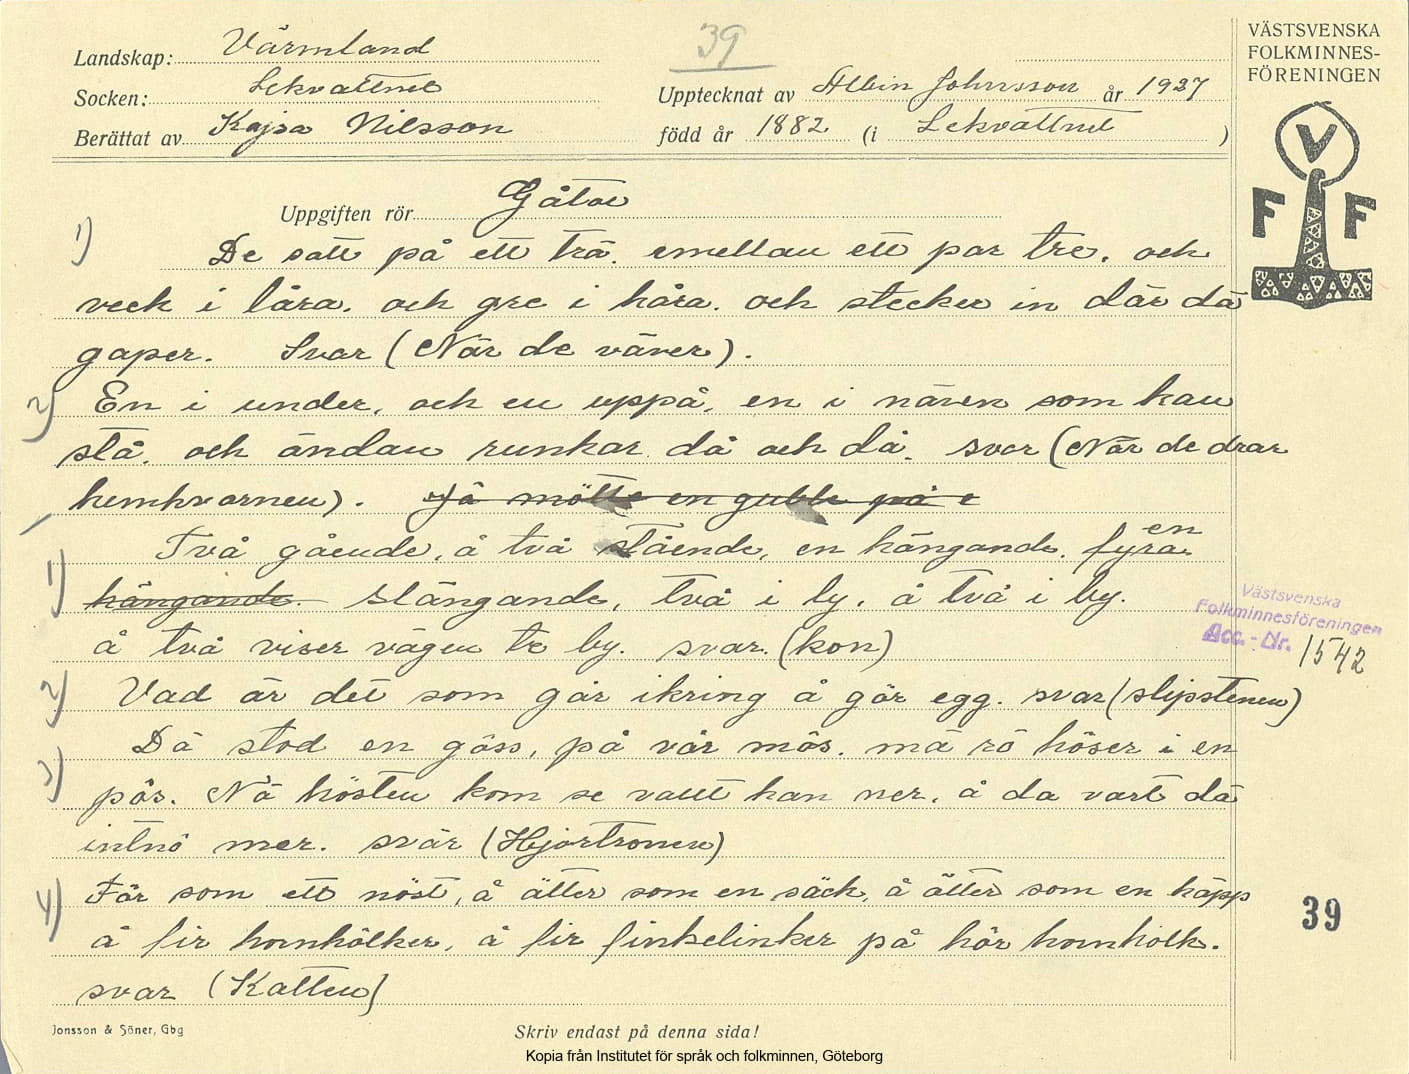 39
VÄSTSVENSKA
FOLKMINNES-
FÖRENINGEN
Landskap: Värmland
Socken: Lekvattnet
Upptecknat av Albin Johnsson år 1927
Berättat av Kajsa Nilsson
född år 1882 (i Lekvattnet )
V
F F
Uppgiften rör Gåtor
1) De satt på ett trä. emellan ett par tre. och
veck i låra. och gre i håra. och stecker in där dä
gaper. Svar (När de väver).
2) En i under, och en uppå, en i näven som kan
stå. och ändan runkar då och då. svar (När de drar
hemkvarnen). Jä mötte en gubbe på e
en
1) Två gående, å två stående, en hängande. fyra
hängande. slängande, två i ly. å två i by.
å två viser vägen te by. svar. (kon)
Västsvenska
Folkminnesföreningen
Acc.-Nr. 1542
2) Vad är det som går ikring å gör egg. svar (slipstenen)
3) Dä stod en gåss, på vår mös. mä rö höser i en
pås. Nä hösten kom se valt han ner. å da vart dä
intnö mer. svär (Hjortronen)
4) För som ett nöst, å ätter som en säck, å ätter som en käpp
å fir hornhölker, å fir finkelinker på hör hornholk.
svar (Katten)
39
Jonsson & Söner, Gbg
Skriv endast på denna sida!
Kopia från Institutet för språk och folkminnen, Göteborg